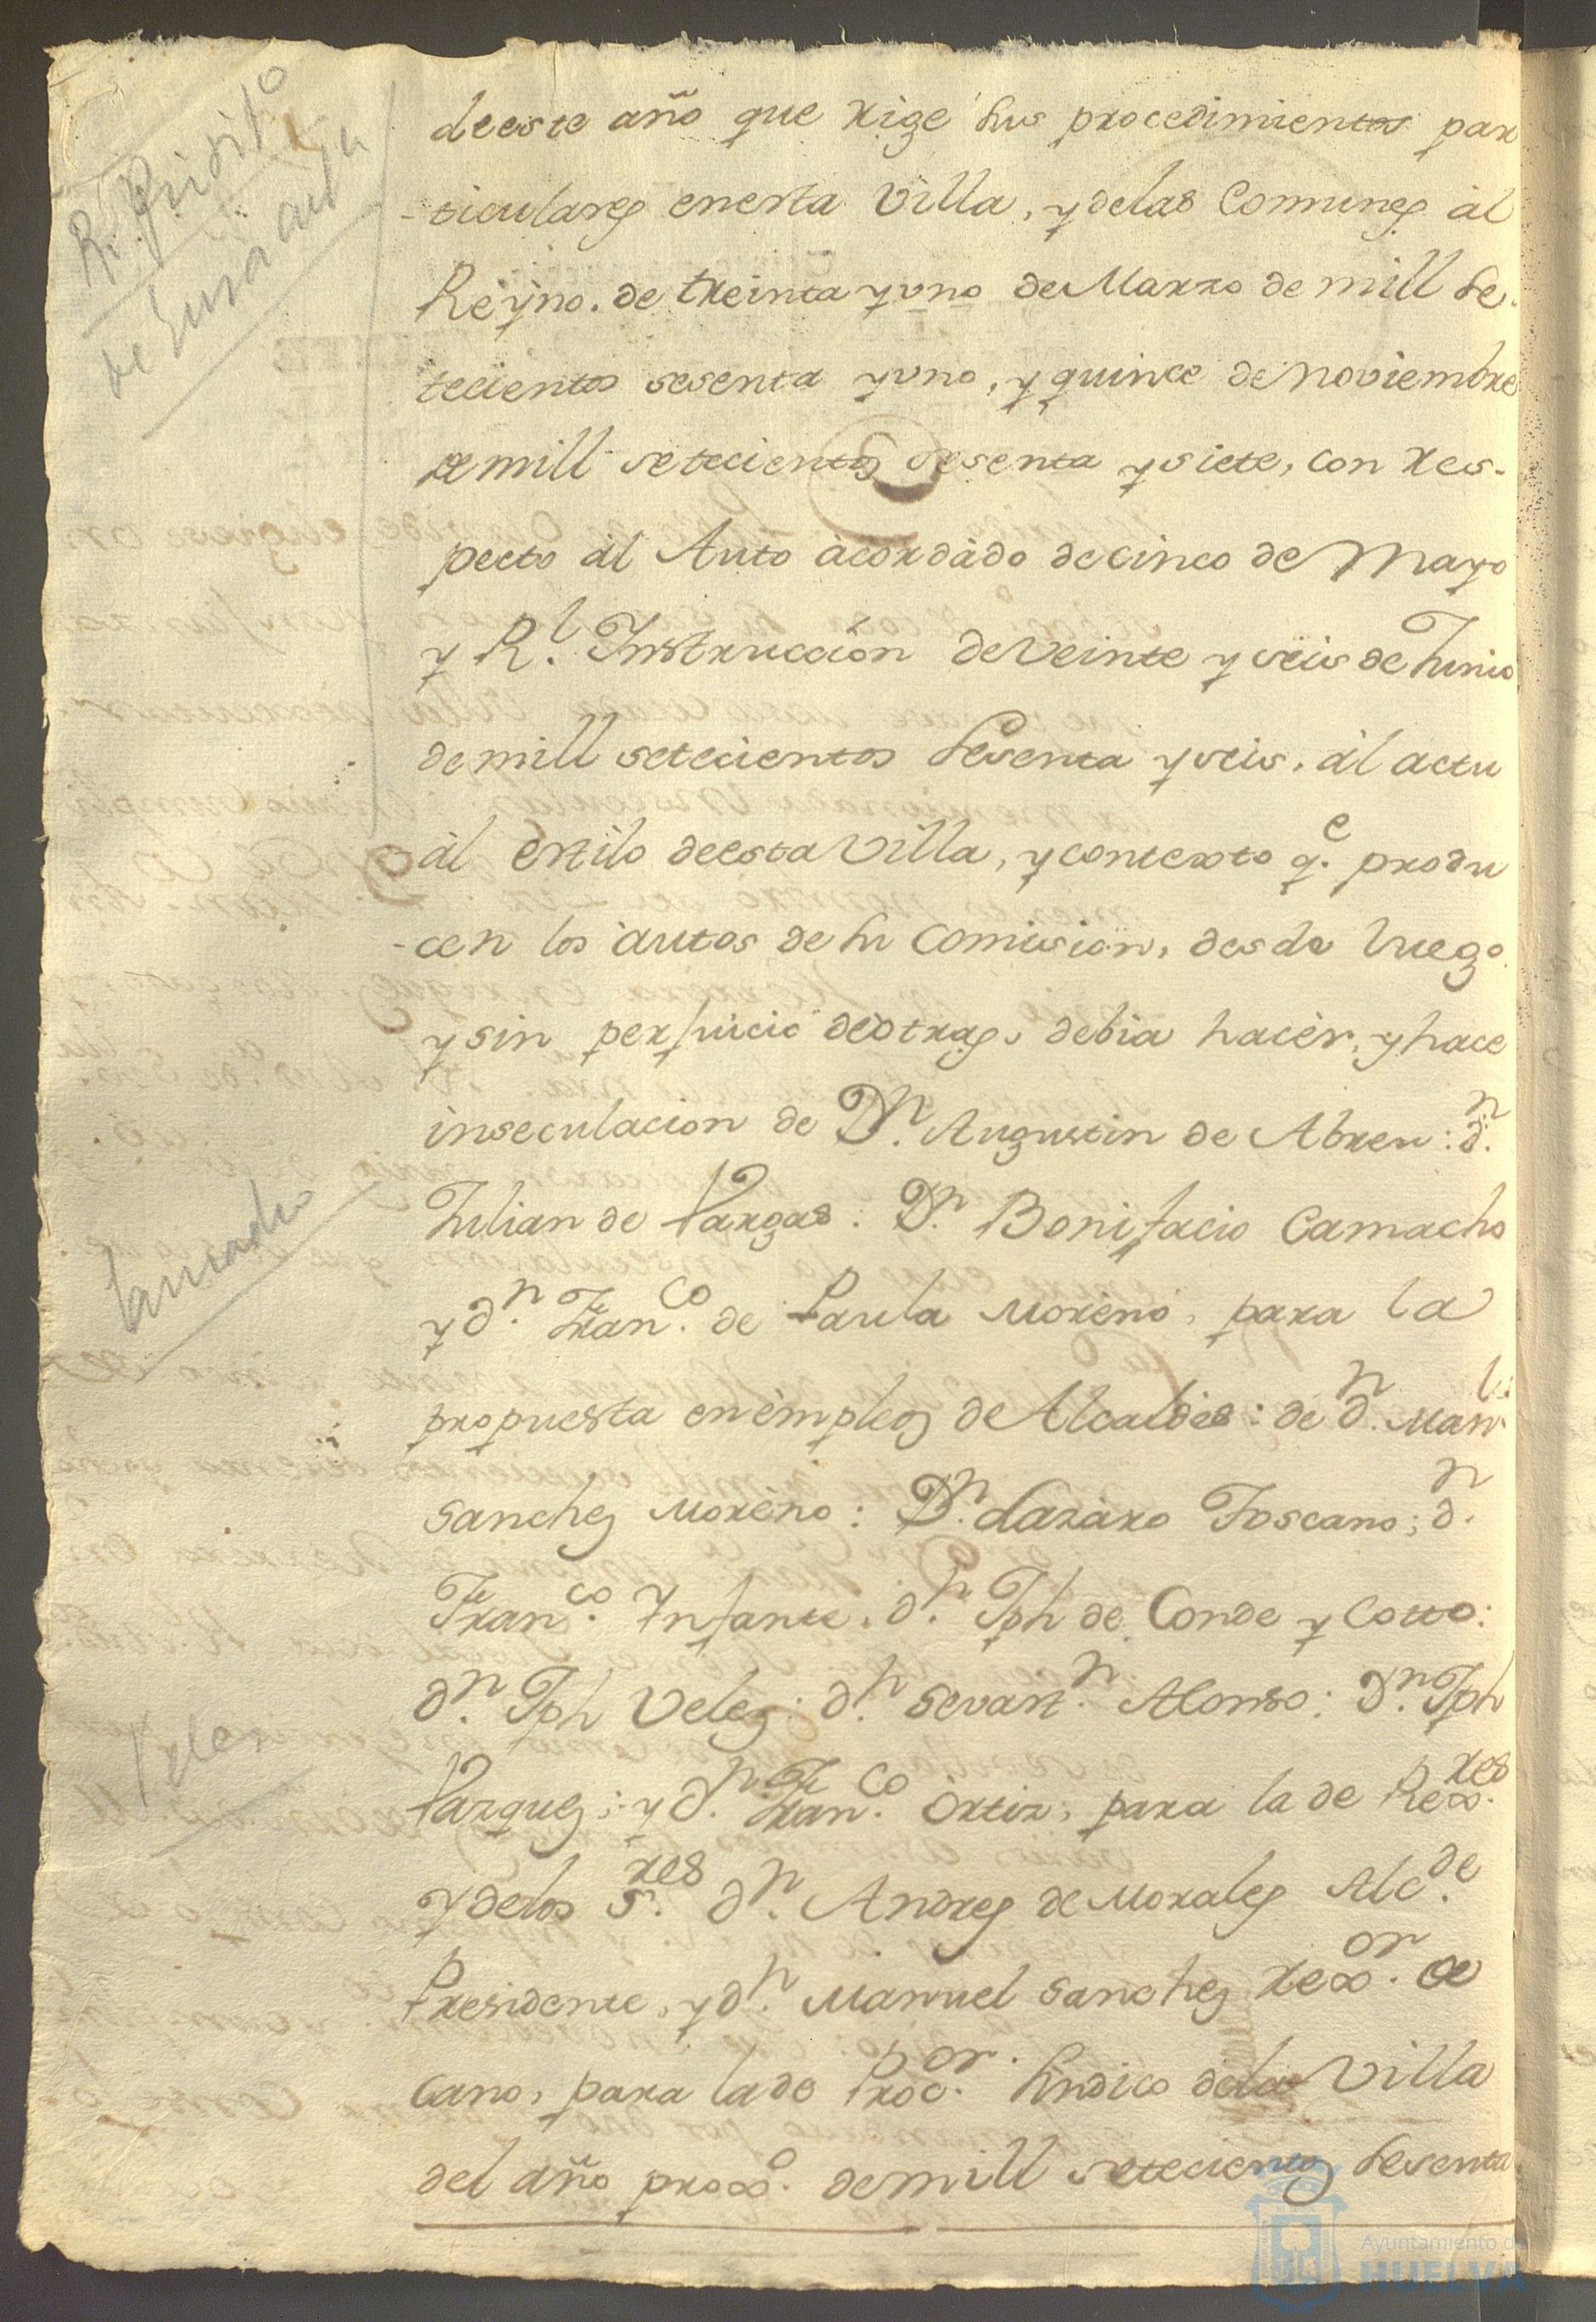 deeste año que rige sus procedimientos par
-ticulares enesta Villa, y delas Comunes àl
Reÿno. de treinta yuno de Marzo de mill se-
tecientos sesenta yuno, y quince de noviembre
de mill setecientos sesenta ysiete, con res-
pecto àl Auto àcordàdo decinco de Mayo
y R.l Instruccion deveinte y seis de Junio
de mill setecientos sesenta yseis, àl actu
àl estilo deesta Villa, ycontexto q.e produ
-cen los àutos de su Comision, desde luego
ysin perjuicio deòtras, debia hacèr, yhace
inseculacion de D.n Augustin de Abreu: d.n
Julian de Vargas: D.n Bonifacio Camacho
y d.n Fran.co de Paula Morèno, para la
propuesta enèmpleos de Alcaldes: de d.n Man.l
Sanchez Morèno: D.n Lazàro Toscano; d.n
Fran.co Ynfante. d.n Jph de Conde y Cotto:
d.n Jph Velez: d.n Sevast.n Alonso: D.n Jph
Vazquez; y d.n Fran.co Òrtiz, para la de Rex.res
ydelos S.res d.n Andres de Morales Alc.de
Presidente, y d.n Manuel Sanchez rex.or de
cano, para lade Proc.or Sindico dela Villa
del año prox.o de mill setecientos sesenta
Camacho
Velez
Ayuntamiento de
HUELVA